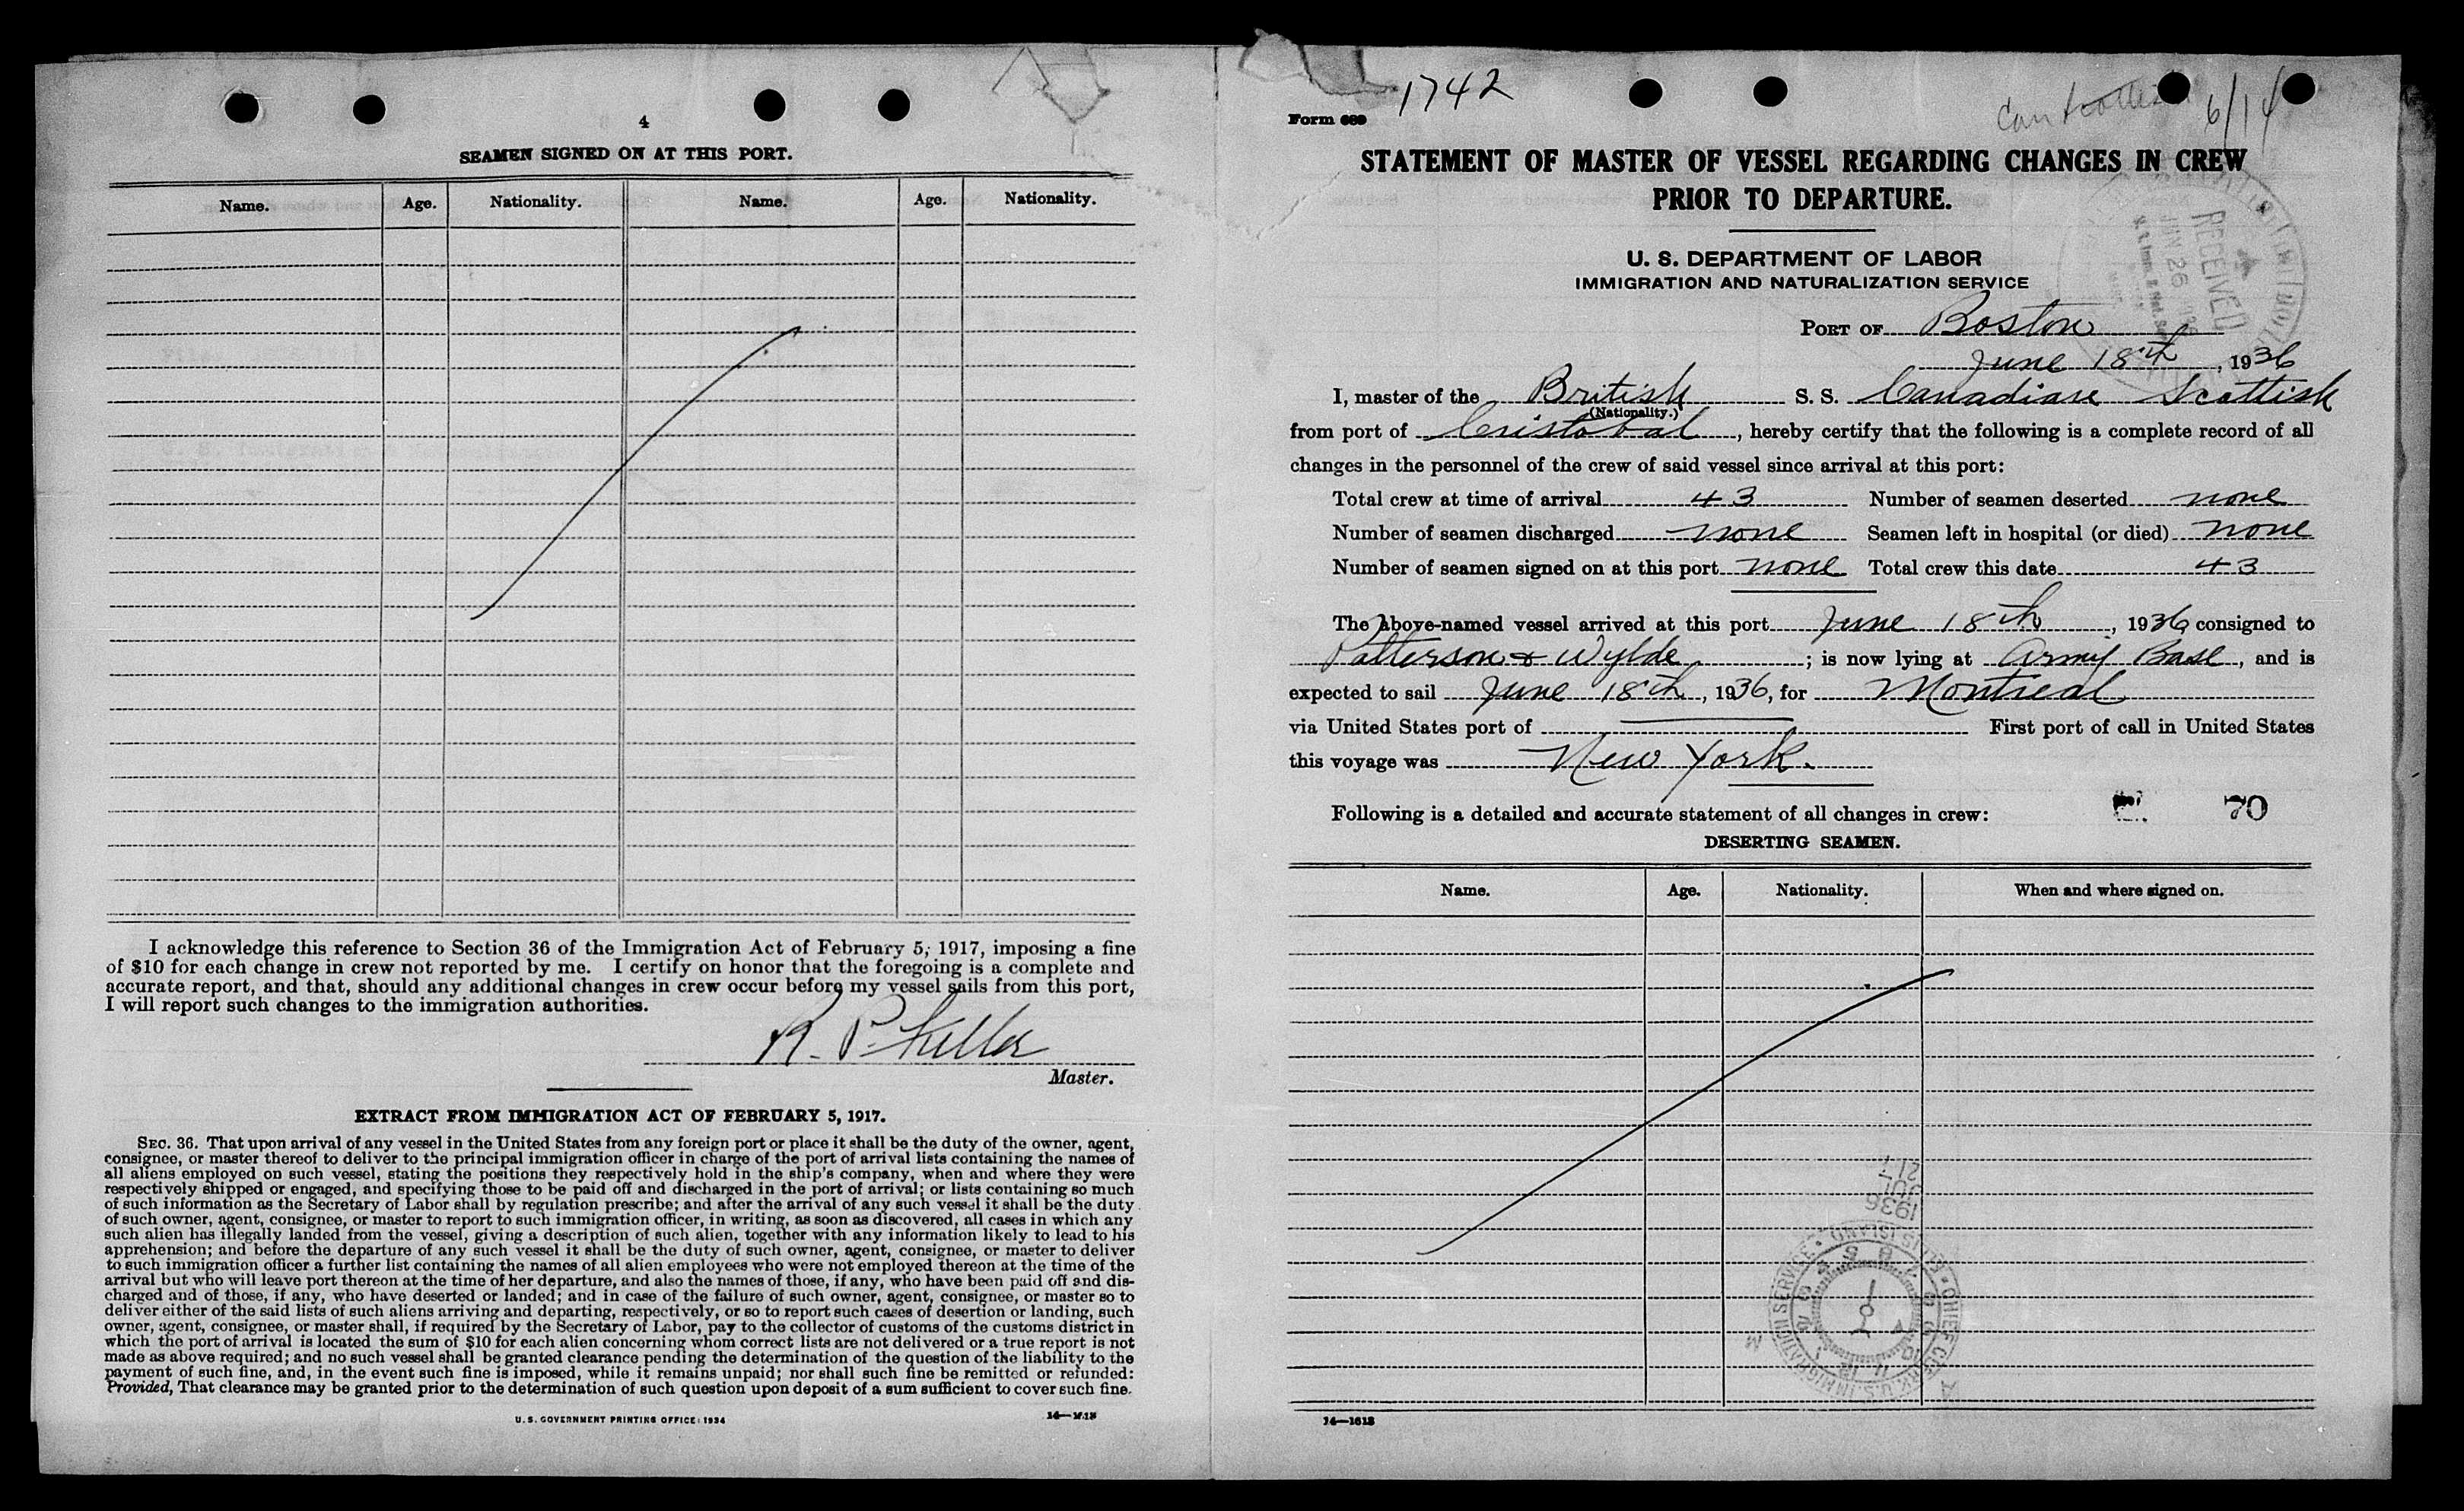 4
SEAMEN SIGNED ON AT THIS PORT.
Name. Age. Nationality. Name. Age. Nationality.
I acknowledge this reference to Section 36 of the Immigration Act of February 5, 1917, imposing a fine
of $10 for each change in crew not reported by me. I certify on honor that the foregoing is a complete and
accurate report, and that, should any additional changes in crew occur before my vessel sails from this port,
I will report such changes to the immigration authorities.
R. P.
Master.
EXTRACT FROM IMMIGRATION ACT OF FEBRUARY 5, 1917.
SEC. 36. That upon arrival of any vessel in the United States from any foreign port or place it shall be the duty of the owner, agent,
consignee, or master thereof to deliver to the principal immigration officer in charge of the port of arrival lists containing the names of
all aliens employed on such vessel, stating the positions they respectively hold in the ship's company, when and where they were
respectively shipped or engaged, and specifying those to be paid off and discharged in the port of arrival; or lists containing so much
of such information as the Secretary of Labor shall by regulation prescribe; and after the arrival of any such vessel it shall be the duty
of such owner, agent, consignee, or master to report to such immigration officer, in writing, as soon as discovered, all cases in which any
such alien has illegally landed from the vessel, giving a description of such alien, together with any information likely to lead to his
apprehension; and before the departure of any such vessel it shall be the duty of such owner, agent, consignee, or master to deliver
to such immigration officer a further list containing the names of all alien employees who were not employed thereon at the time of the
arrival but who will leave port thereon at the time of her departure, and also the names of those, if any, who have been paid off and dis-
charged and of those, if any, who have deserted or landed; and in case of the failure of such owner, agent, consignee, or master so to
deliver either of the said lists of such aliens arriving and departing, respectively, or so to report such cases of desertion or landing, such
owner, agent, consignee, or master shall, if required by the Secretary of Labor, pay to the collector of customs of the customs district in
which the port of arrival is located the sum of $10 for each alien concerning whom correct lists are not delivered or a true report is not
made as above required; and no such vessel shall be granted clearance pending the determination of the question of the liability to the
payment of such fine, and, in the event such fine is imposed, while it remains unpaid; nor shall such fine be remitted or refunded:
Provided, That clearance may be granted prior to the determination of such question upon deposit of a sum sufficient to cover such fine.
U. S. GOVERNMENT PRINTING OFFICE: 1934
1742
6/14
Form 689
STATEMENT OF MASTER OF VESSEL REGARDING CHANGES IN CREW
PRIOR TO DEPARTURE.
U. S. DEPARTMENT OF LABOR
IMMIGRATION AND NATURALIZATION SERVICE
RECEIVED
PORT OF Boston
June 18th, 1936
I, master of the British S. S. Canadian Scottish
(Nationality.)
from port of Cristobal, hereby certify that the following is a complete record of all
changes in the personnel of the crew of said vessel since arrival at this port:
Total crew at time of arrival 43 Number of seamen deserted none
Number of seamen discharged none Seamen left in hospital (or died) none
Number of seamen signed on at this port none Total crew this date 43
The above-named vessel arrived at this port June 18th, 1936 consigned to
Patterson & Wylde; is now lying at Army Base, and is
expected to sail June 18th, 1936, for Montreal
via United States port of First port of call in United States
this voyage was New York.
Following is a detailed and accurate statement of all changes in crew: 70
DESERTING SEAMEN.
Name. Age. Nationality. When and where signed on.
1936
CHIEF CLERK U.S. IMMIGRATION SERVICE ELLIS ISLAND
14—1613